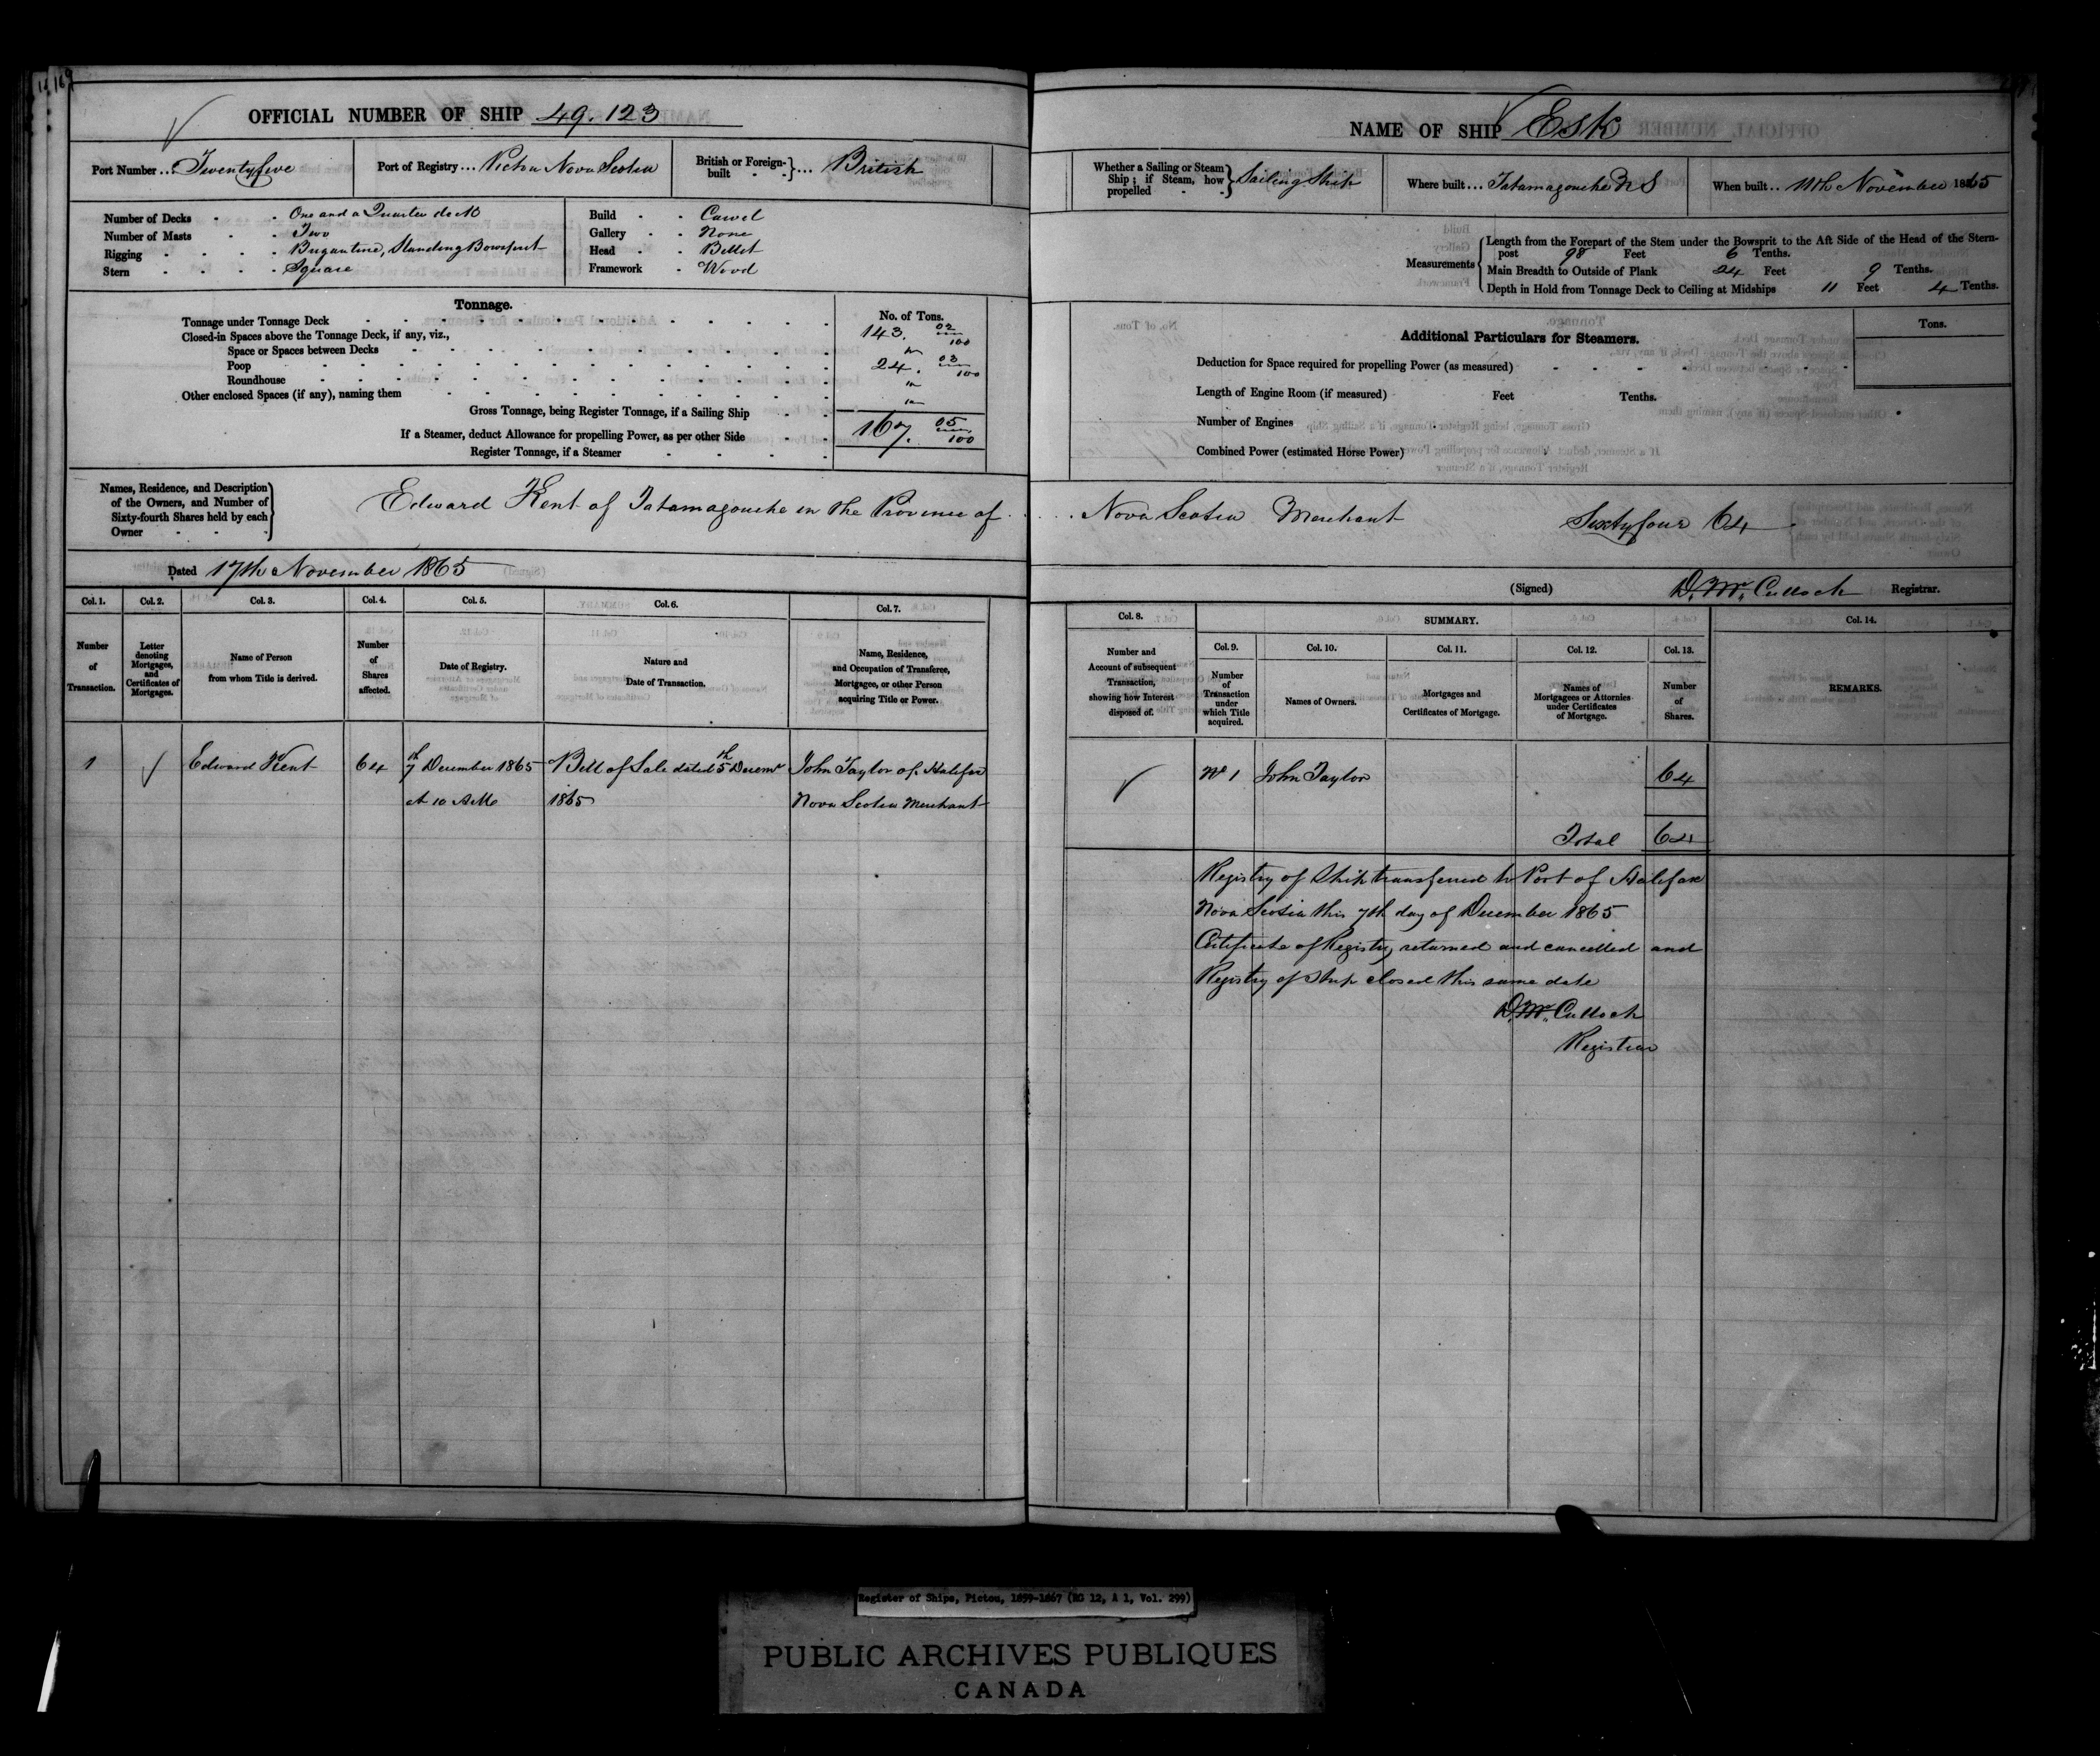 OFFICIAL NUMBER OF SHIP 49.123
Port Number ... Twentyfive
Port of Registry ... Pictou Nova Scotia
British or Foreign-built ... British
Number of Decks One and a Quarter deck
Number of Masts Two
Rigging Brigantine, Standing Bowsprit
Stern Square
Build Carvel
Gallery None
Head Billet
Framework Wood
Tonnage.
No. of Tons.
Tonnage under Tonnage Deck 143. 02/100
Closed-in Spaces above the Tonnage Deck, if any, viz.,
Space or Spaces between Decks
Poop 24. 03/100
Roundhouse
Other enclosed Spaces (if any), naming them
Gross Tonnage, being Register Tonnage, if a Sailing Ship 167. 05/100
If a Steamer, deduct Allowance for propelling Power, as per other Side
Register Tonnage, if a Steamer
Names, Residence, and Description
of the Owners, and Number of
Sixty-fourth Shares held by each
Owner
Edward Kent of Tatamagouche in the Province of
Dated 17th November 1865
Col. 1. Col. 2. Col. 3. Col. 4. Col. 5. Col. 6. Col. 7.
Number of Transaction.
Letter denoting Mortgages, and Certificates of Mortgages.
Name of Person from whom Title is derived.
Number of Shares affected.
Date of Registry.
Nature and Date of Transaction.
Name, Residence, and Occupation of Transferee, Mortgagee, or other Person acquiring Title or Power.
1 Edward Kent 64 7th December 1865 Bill of Sale dated 5th Decemr John Taylor of Halifax
at 10 AM 1865 Nova Scotia Merchant
NAME OF SHIP Esk
Whether a Sailing or Steam Ship; if Steam, how propelled Sailing Ship
Where built ... Tatamagouche NS
When built .. 11th November 1865
Measurements
Length from the Forepart of the Stem under the Bowsprit to the Aft Side of the Head of the Stern-
post 98 Feet 6 Tenths.
Main Breadth to Outside of Plank 24 Feet 9 Tenths.
Depth in Hold from Tonnage Deck to Ceiling at Midships 11 Feet 4 Tenths.
Additional Particulars for Steamers.
Tons.
Deduction for Space required for propelling Power (as measured)
Length of Engine Room (if measured) Feet Tenths.
Number of Engines
Combined Power (estimated Horse Power)
Nova Scotia Merchant Sixtyfour 64
(Signed) D. Mc. Culloch Registrar.
Col. 8. SUMMARY. Col. 14.
Col. 9. Col. 10. Col. 11. Col. 12. Col. 13.
Number and Account of subsequent Transaction, showing how Interest disposed of.
Number of Transaction under which Title acquired.
Names of Owners.
Mortgages and Certificates of Mortgage.
Names of Mortgagees or Attornies under Certificates of Mortgage.
Number of Shares.
REMARKS.
No 1 John Taylor 64
Total 64
Registry of Ship transferred to Port of Halifax
Nova Scotia this 7th day of December 1865
Certificate of Registry returned and cancelled and
Registry of Ship closed this same date
D. Mc. Culloch
Registrar
Register of Ships, Pictou, 1859-1867 (RG 12, A 1, Vol. 299)
PUBLIC ARCHIVES PUBLIQUES
CANADA